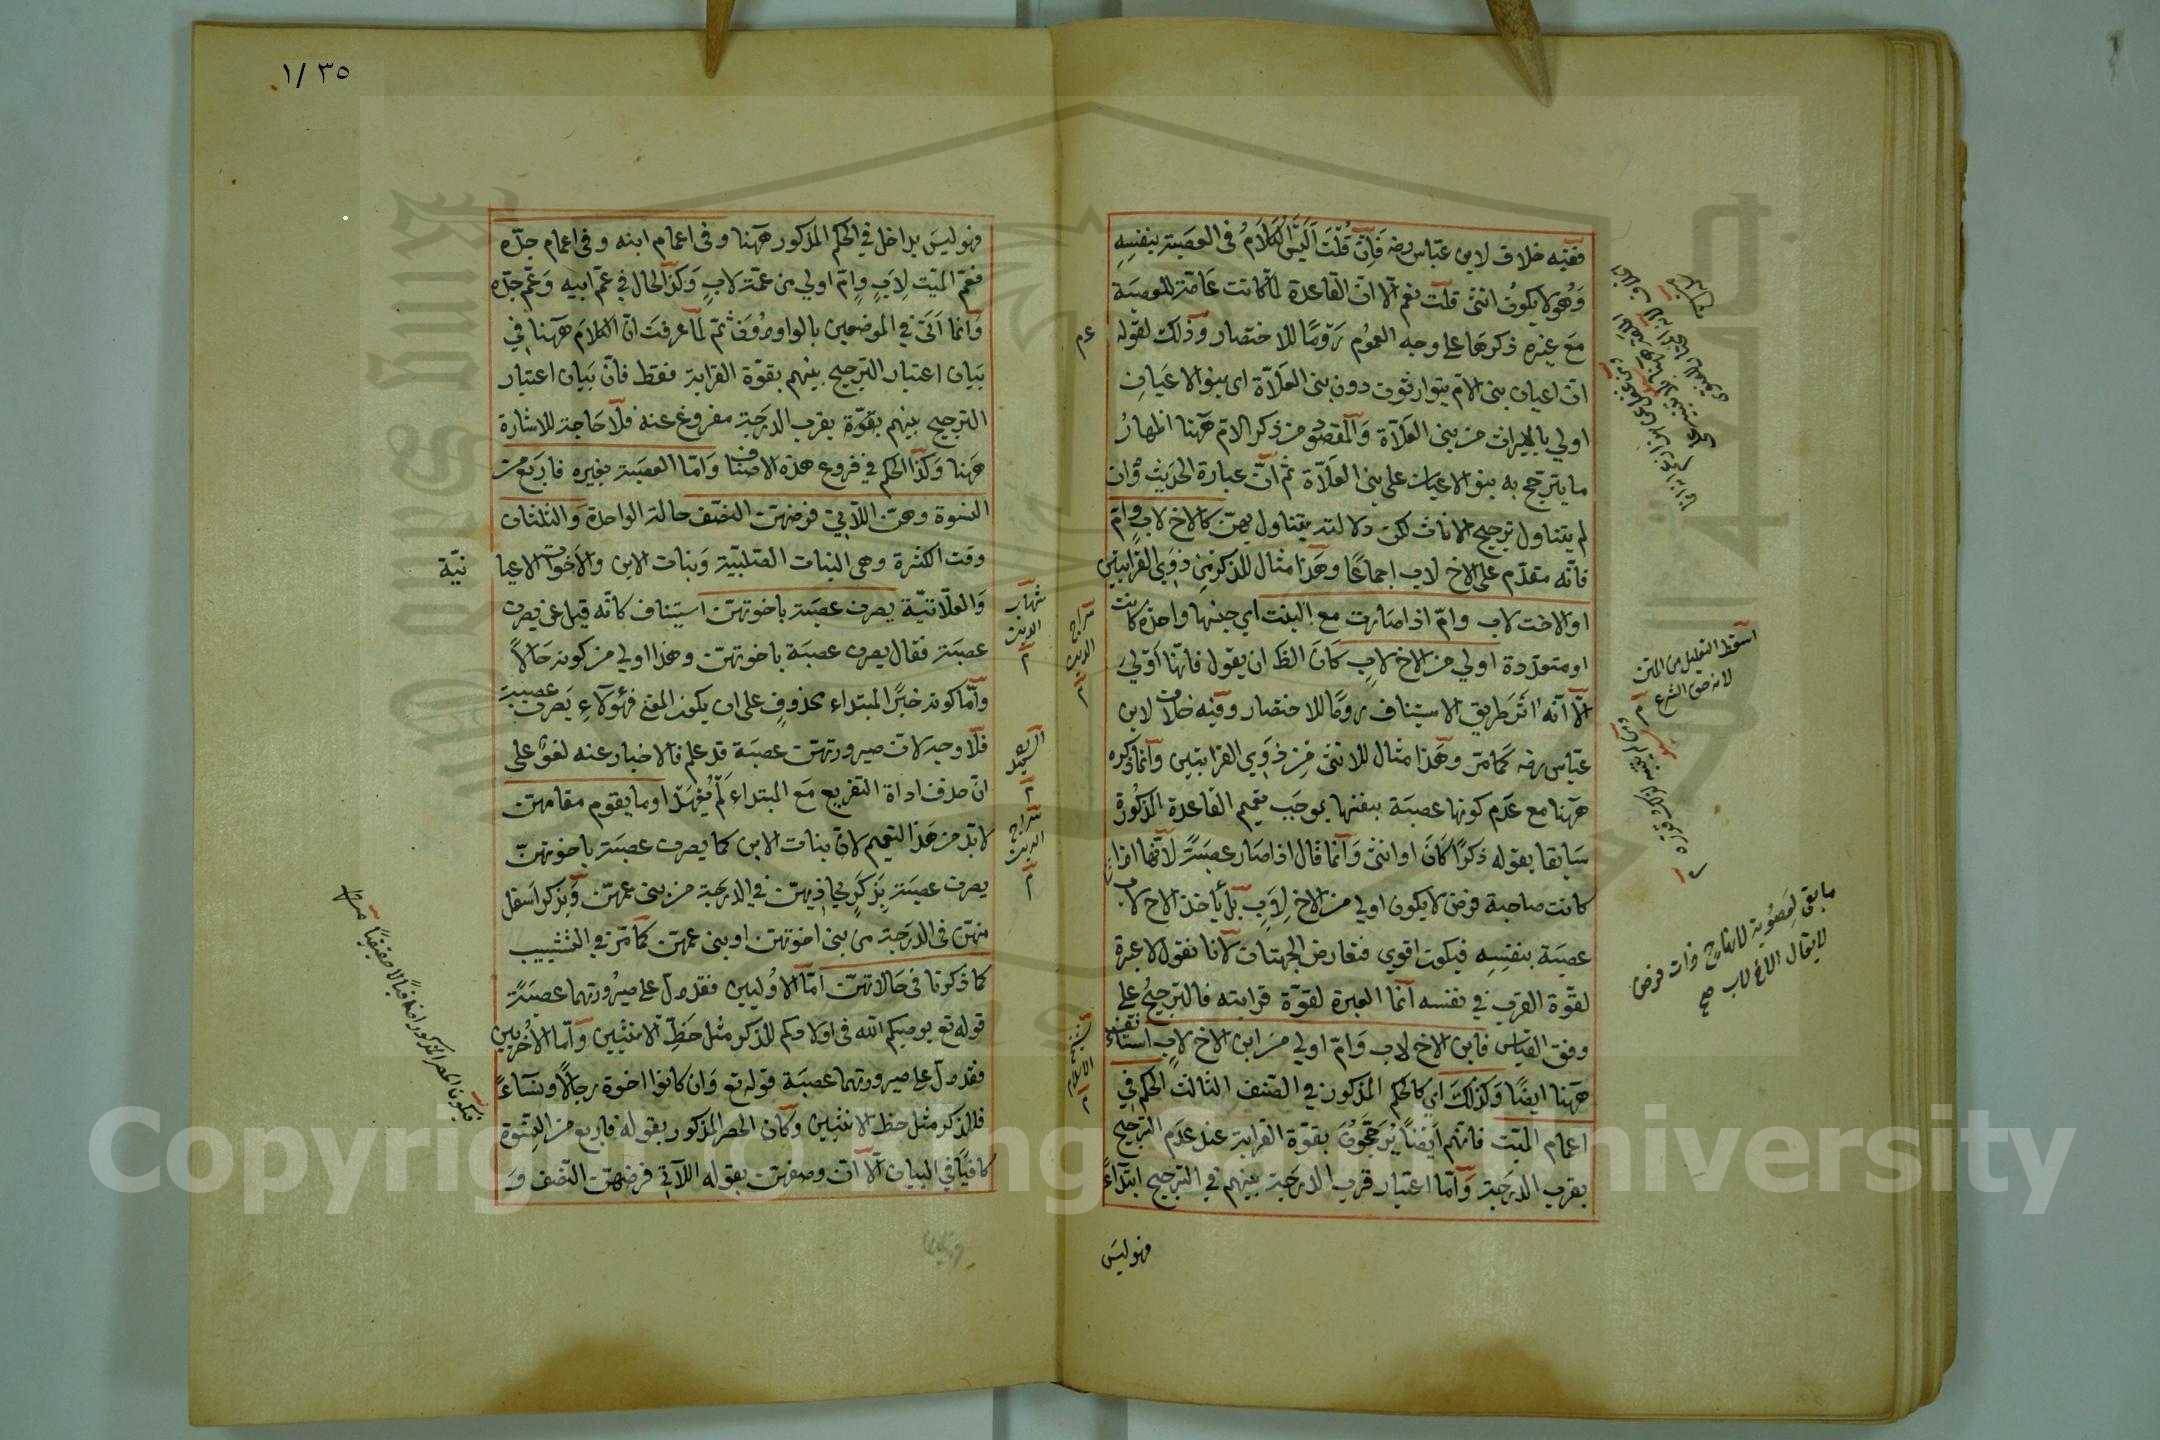 ففيه خلاف لابن عباس رضه فان قلت اليس الكلام فى العصبة بنفسه
وهو لا يكون انثى قلت نعم الا ان القاعدة لما كانت عامة للعصبة
مع غيره ذكرها على وجه العموم رومًا للاختصار وذلك لقوله
عم
ان اعيان بنى الام يتوارثون دون بنى العلاّة اى بنو الاعيان
اولى بالميراث من بنى العلاّة والمقصود من ذكر الام ههنا اظهار
ما يترجح به بنو الاعيان على بنى العلاّة ثم انّ عبارة الحديث وان
لم يتناول ترجيح الاناث لكن دلالته يتناول بهن كالاخ لاب وامّ
فانّه مقدّم على الاخ لاب اجماعًا وهذا مثال للذكر من ذوى القرابتين
او الاخت لاب وامّ اذا صارت مع البنت اى جنسها واحدة كانت
او متعدّدة اولى من الاخ لاب كان الظ ان يقول فانها اولى
الّا انّه اثر طريق الاستيناف رومًا للاختصار وفيه خلاف لابن
عبّاس رضه كما مرّ وهذا مثال للانثى من ذوى القرابتين وانما ذكره
ههنا مع عدم كونها عصبة بنفسها بموجب تعميم القاعدة المذكورة
سابقا بقوله ذكرًا كان او انثى وانما قال اذا صار عصبة لانّها اذا
كانت صاحبة فرض لا يكون اولى من الاخ لاب بل يأخذ الاخ لاب
عصبة بنفسه فيكون اقوى فتعارض الجهتان لانا نقول لا عبرة
لقوّة القرب فى نفسه انما العبرة لقوّة قرابته فالترجيح على
وفق القياس فابن الاخ لاب وامّ اولى من ابن الاخ لاب استثناء
ههنا ايضًا وكذلك اى كالحكم المذكور فى الصنف الثالث الحكم فى
اعمام الميّت فانهم ايضًا يرجّحون بقوّة القرابة عند عدم الترجيح
بقرب الدرجة وامّا اعتبار قرب الدرجة بينهم فى الترجيح ابتداءً
فهو ليس
سراج
الدين
شيخ
الاسلام
اسقط التعليل من المتن
لانه حق الشرع
ما بقى لعصوبة
لا يقال الاخ لاب
١/٣٥
فهو ليس بداخل فى الحكم المذكور ههنا وفى اعمام ابيه وفى اعمام جدّه
فعمّ الميّت لاب وامّ اولى من عمّه لاب وكذا الحال فى عمّ ابيه وعمّ جدّه
وانما اتى فى الموضعين بالواو دون ثمّ لما عرفت انّ الكلام ههنا فى
بيان اعتبار الترجيح بينهم بقوّة القرابة فقط فانّ بيان اعتبار
الترجيح بينهم بقوّة بقرب الدرجة مفروغ عنه فلا حاجة للاشارة
ههنا وكذا الحكم فى فروع هذه الاصناف وامّا العصبة بغيره فاربع من
النسوة وهن اللاتى فرضهنّ النصف حالة الواحدة والثلثان
وقت الكثرة وهى البنات الصلبيّة وبنات الابن والاخوات الاعيا
نيّة
والعلّاتيّة يصرن عصبة باخوتهنّ استيناف كانّه قيل عن يصرن
عصبة فقال يصرن عصبة باخوتهنّ وهذا اولى من كونه حالاً
وامّا كونه خبر المبتداء محذوف على ان يكون المعنى فهؤلاء يصرن عصبة
فلا وجه لانّ صيرورتهنّ عصبة قد علم فالاخبار عنه لغو على
انّ حذف اداة التفريع مع المبتداء لم يُعهد او ما يقوم مقامهنّ
لا بدّ من هذا التعميم لانّ بنات الابن كما يصرن عصبة باخوتهنّ
يصرن عصبة بذكر يحاذيهنّ فى الدرجة من بنى عمهنّ وبذكر اسفل
منهنّ فى الدرجة من بنى اخوتهنّ او بنى عمهنّ كما مرّ فى التشبيب
كما ذكرنا فى حالاتهنّ امّا الاوليين فقد دلّ على صيرورتهما عصبة
قوله تع يوصيكم الله فى اولادكم للذكر مثل حظّ الانثيين وامّا الاخريين
فقد دلّ على صيرورتهما عصبة قوله تع وان كانوا اخوة رجالًا ونساءً
فللذكر مثل حظ الانثيين وكان الحصر المذكور بقوله فاربع من النسوة
كافيًا فى البيان الّا انّ وصفهنّ بقوله اللاتى فرضهنّ النصف و
شهاب
الدين
السيد
سراج
الدين
فيكون الحصر المذكور اضافيا لا حقيقيا
Copyright © King Saud University